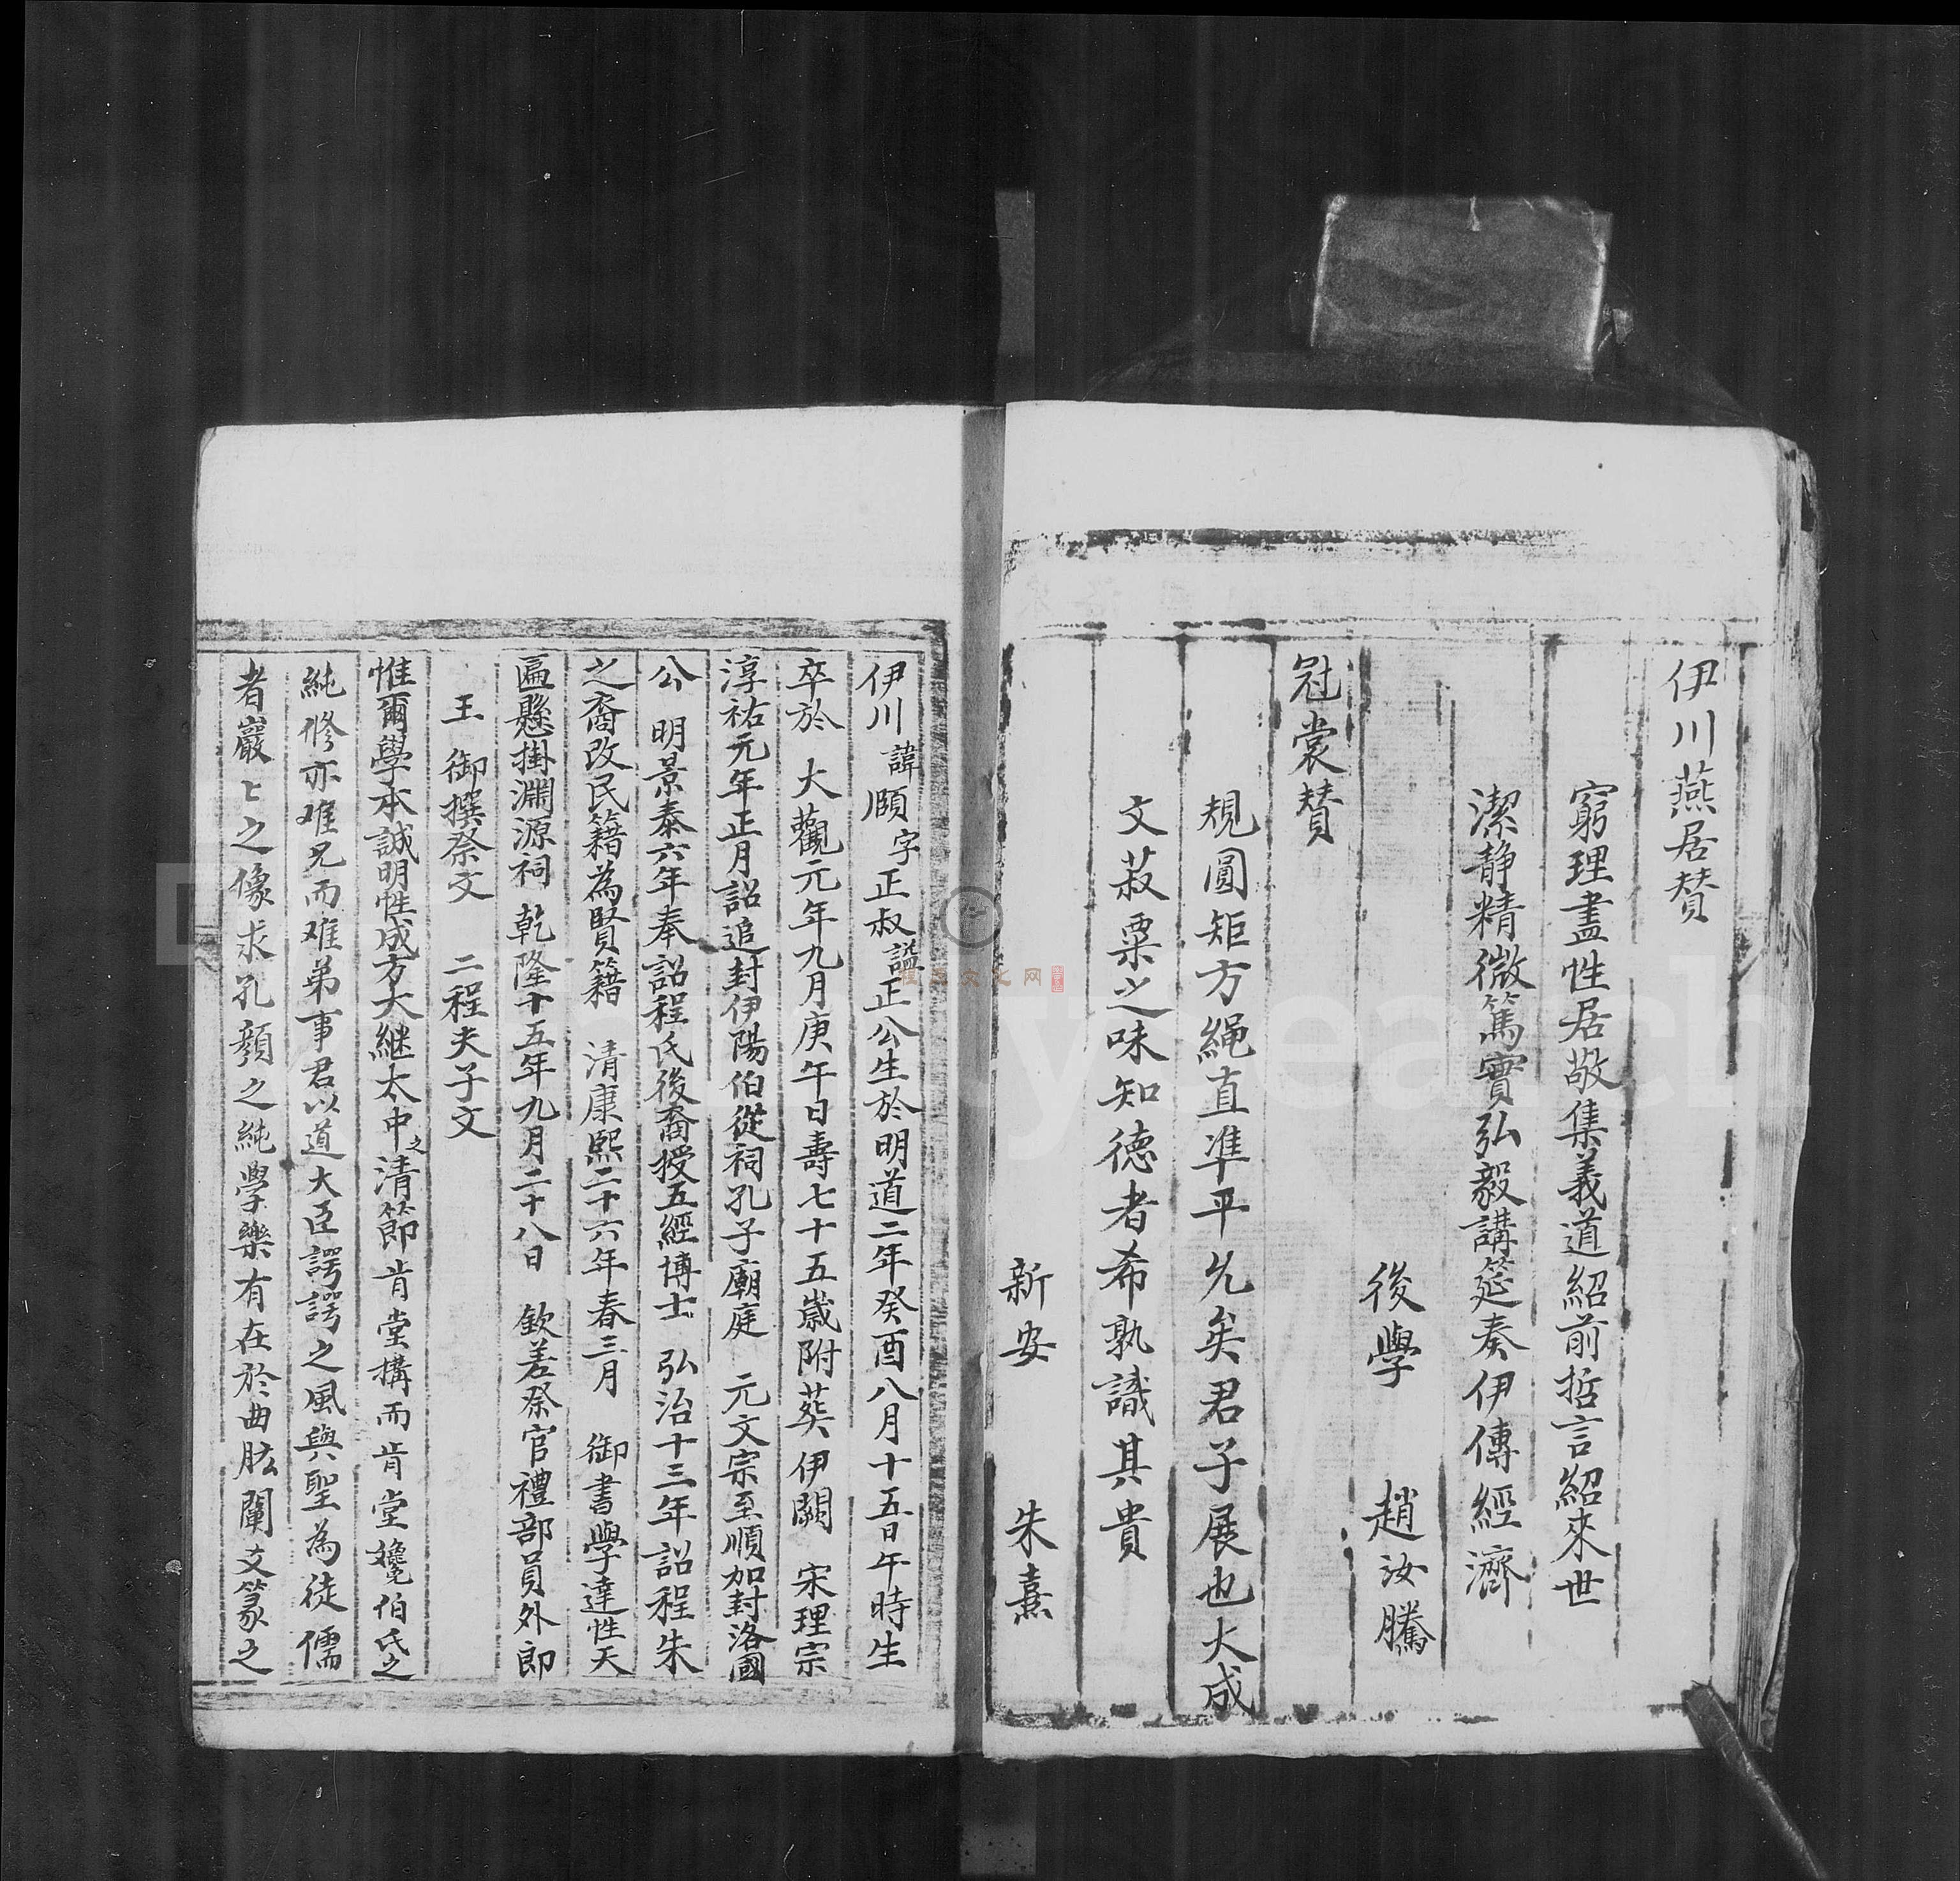 伊川燕居賛
窮理盡性居敬集義道紹前哲言紹來世
潔静精微篤實弘毅講筵奏伊傳經濟
後學 趙汝騰
冠裳賛
規圓矩方繩直準平允矣君子展也大成
文菽粟之味知德者希孰識其貴
新安 朱熹
伊川諱頤字正叔謚正公生於明道二年癸酉八月十五日午時生
卒於 大觀元年九月庚午日壽七十五歲附葬伊闕 宋理宗
淳祐元年正月詔追封伊陽伯從祠孔子廟庭 元文宗至順加封洛國
公 明景泰六年奉詔程氏後裔授五經博士 弘治十三年詔程朱
之裔改民籍為賢籍 清康熙二十六年春三月 御書學達性天
匾懸掛淵源祠 乾隆十五年九月二十八日 欽差祭官禮部員外郎
王 御撰祭文 二程夫子文
惟爾學本誠明性成方大継太中之清節肯堂構而肯堂纔伯氏之
純修亦难兄而难弟事君以道大臣諤諤之風與聖為徒儒
者巖〻之像求孔顔之純學樂有在於曲肱闡爻篆之